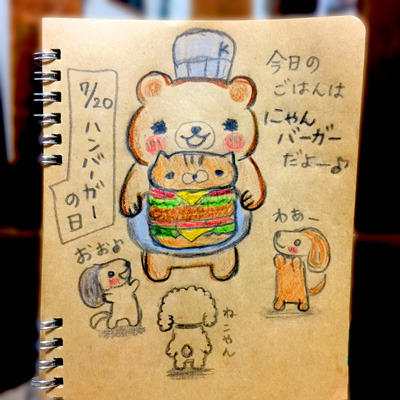 7/20
ハンバーガー
の日
K
今日の
ごはんは
にゃん
バーガー
だよー♪
おおぉ
わあー
ねこやん